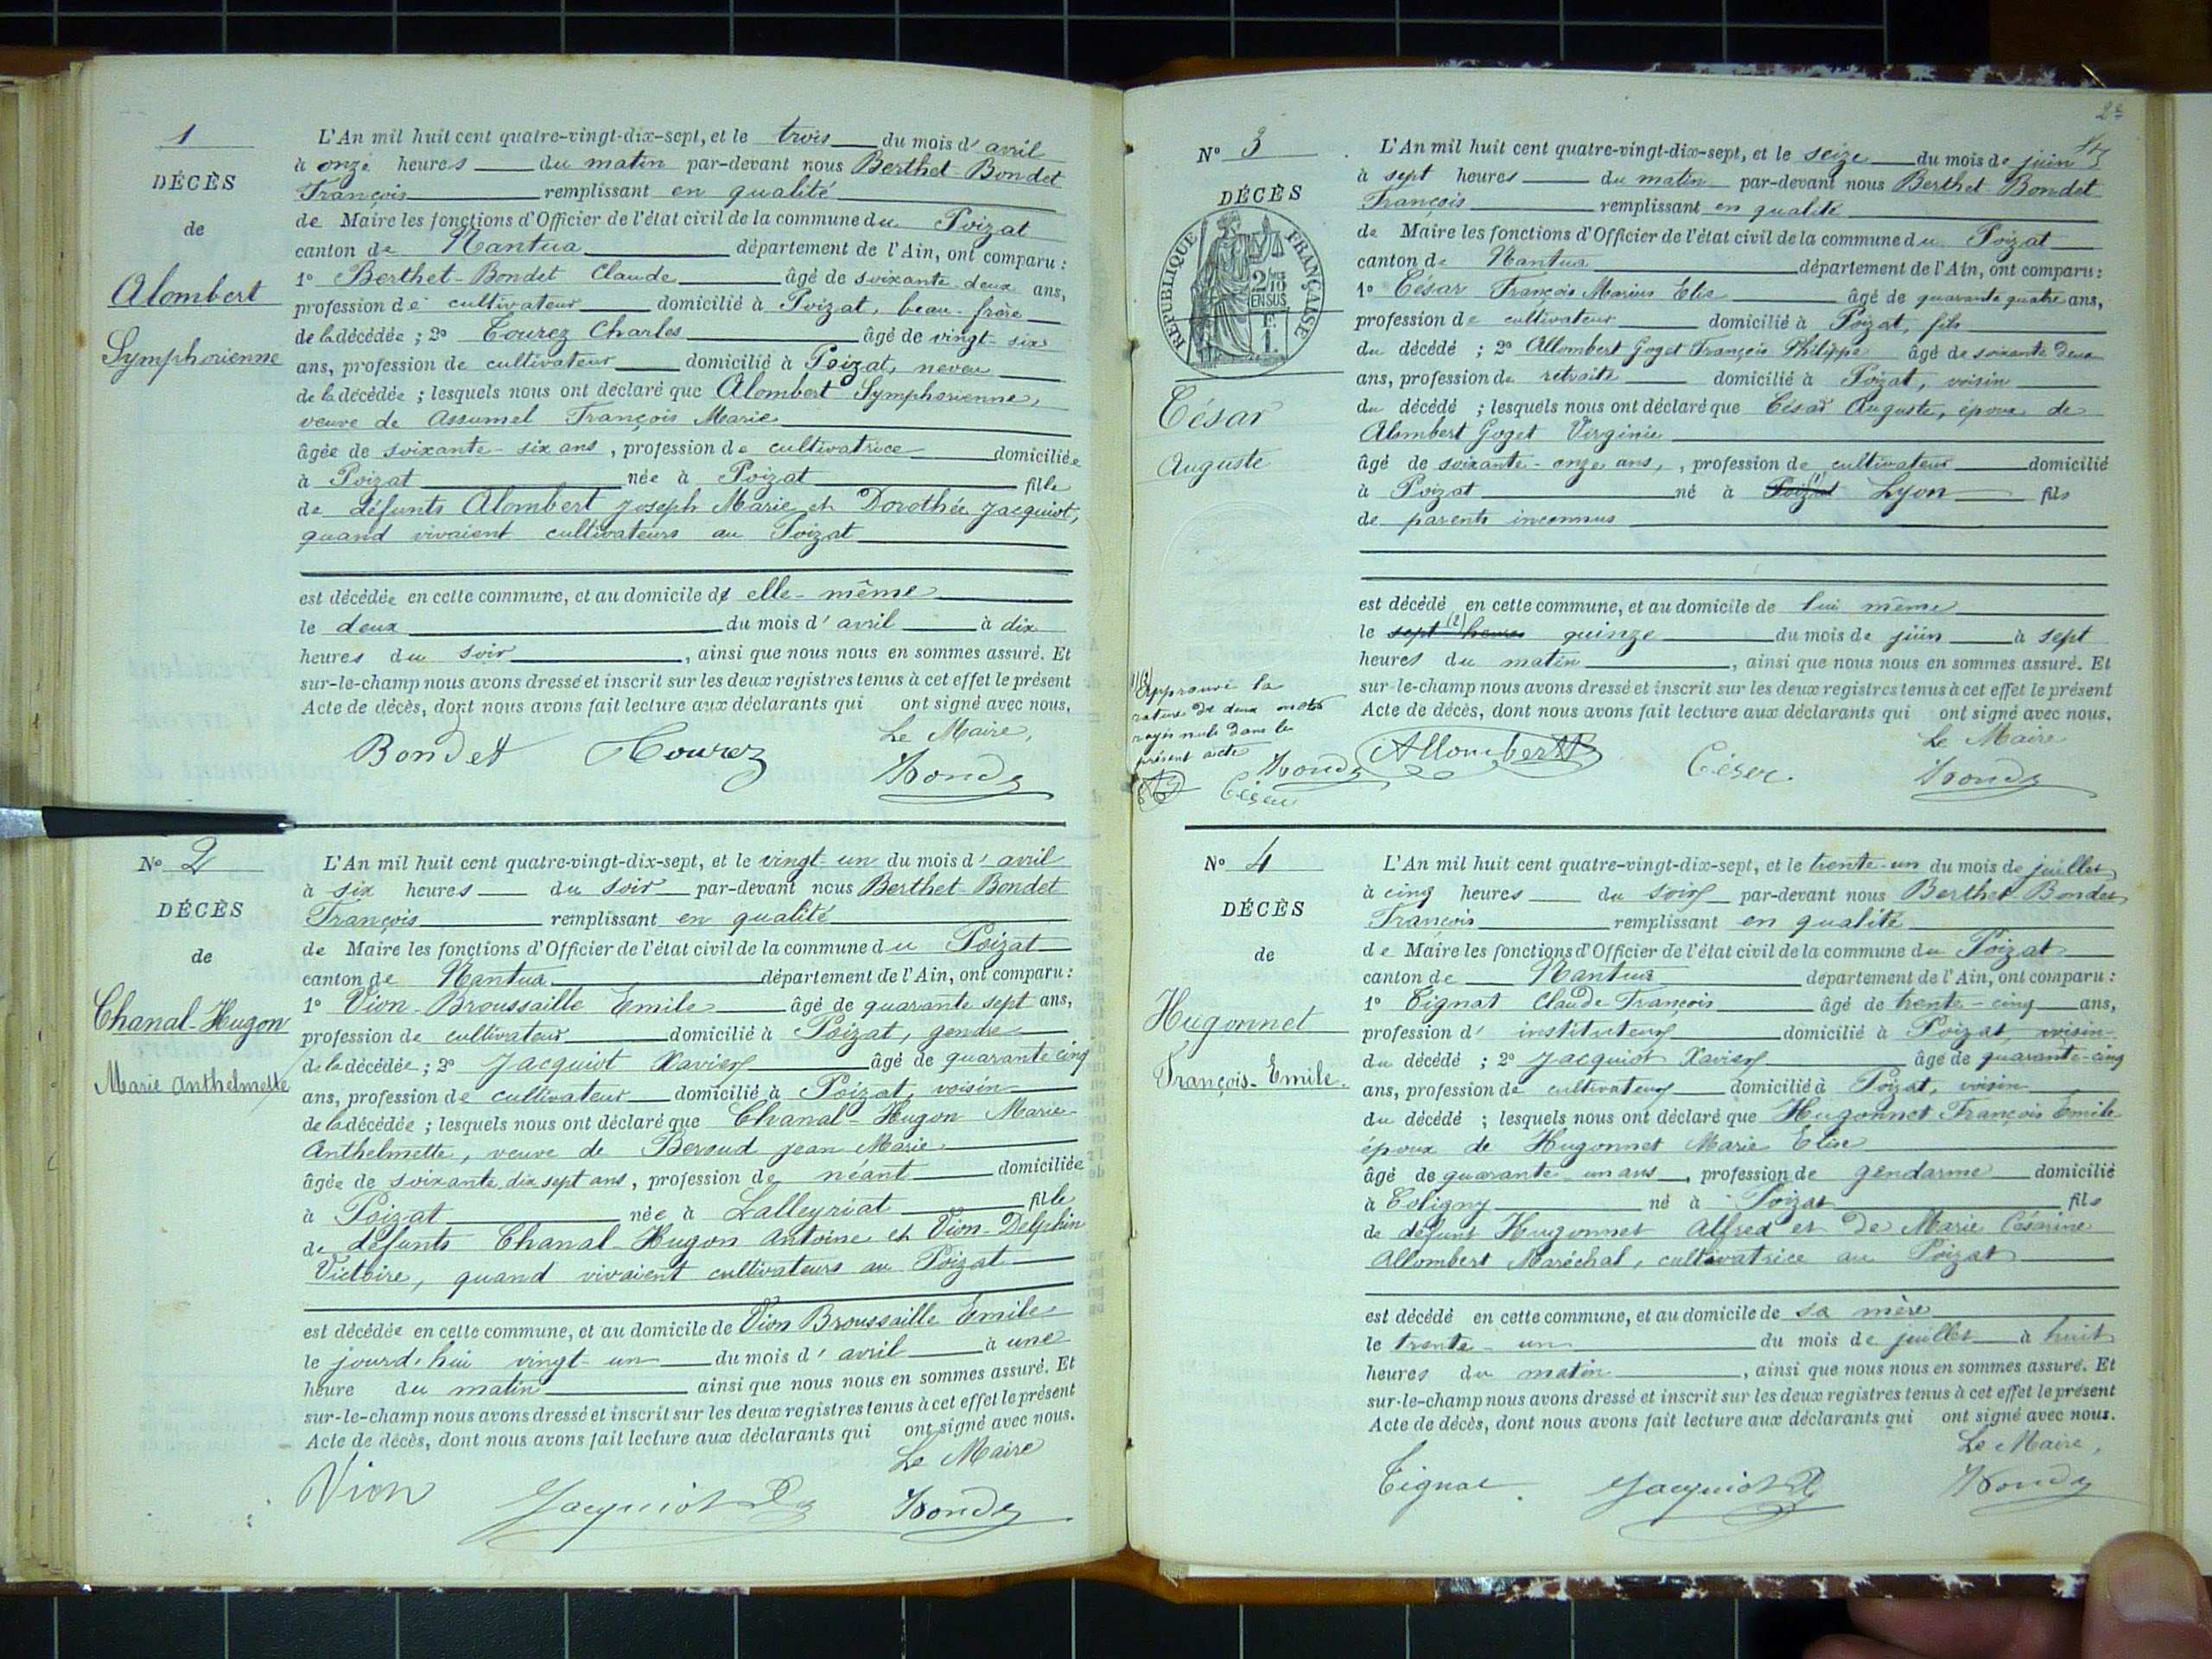 1
DÉCÈS
de
Alombert
Symphorienne
L'An mil huit cent quatre-vingt-dix-sept, et le trois du mois d'avril
à onze heures du matin par-devant nous Berthet-Bondet
François remplissant en qualité
de Maire les fonctions d'Officier de l'état civil de la commune du Poizat
canton de Nantua département de l'Ain, ont comparu :
1º Berthet-Bondet Claude âgé de soixante-deux ans,
profession de cultivateur domicilié à Poizat, beau-frère
de la décédée ; 2º Tourez Charles âgé de vingt-six
ans, profession de cultivateur domicilié à Poizat, neveu
de la décédée ; lesquels nous ont déclaré que Alombert Symphorienne,
veuve de Assumel François Marie
âgée de soixante-six ans, profession de cultivatrice domiciliée
à Poizat née à Poizat fille
de défunts Alombert Joseph Marie et Dorothée Jacquiot,
quand vivaient cultivateurs au Poizat
est décédée en cette commune, et au domicile d' elle-même
le deux du mois d'avril à dix
heures du soir, ainsi que nous nous en sommes assuré. Et
sur-le-champ nous avons dressé et inscrit sur les deux registres tenus à cet effet le présent
Acte de décès, dont nous avons fait lecture aux déclarants qui ont signé avec nous.
Le Maire,
Bondet Tourez
Nº 2
DÉCÈS
de
Chanal-Hugon
Marie Anthelmette
L'An mil huit cent quatre-vingt-dix-sept, et le vingt-un du mois d'avril
à six heures du soir par-devant nous Berthet-Bondet
François remplissant en qualité
de Maire les fonctions d'Officier de l'état civil de la commune du Poizat
canton de Nantua département de l'Ain, ont comparu :
1º Vion-Broussaille Emile âgé de quarante sept ans,
profession de cultivateur domicilié à Poizat, gendre
de la décédée ; 2º Jacquiot Xavier âgé de quarante cinq
ans, profession de cultivateur domicilié à Poizat, voisin
de la décédée ; lesquels nous ont déclaré que Chanal-Hugon Marie
Anthelmette, veuve de Beroud Jean Marie
âgée de soixante dix sept ans, profession de néant domiciliée
à Poizat née à Lalleyriat fille
de défunts Chanal-Hugon Antoine et Vion-Delphin
Victoire, quand vivaient cultivateurs au Poizat
est décédée en cette commune, et au domicile de Vion Broussaille Emile
le jourd'hui vingt-un du mois d'avril à une
heure du matin ainsi que nous nous en sommes assuré. Et
sur-le-champ nous avons dressé et inscrit sur les deux registres tenus à cet effet le présent
Acte de décès, dont nous avons fait lecture aux déclarants qui ont signé avec nous.
Le Maire
Vion Jacquiot
Nº 3
DÉCÈS
RÉPUBLIQUE FRANÇAISE
César
Auguste
L'An mil huit cent quatre-vingt-dix-sept, et le seize du mois de juin
à sept heures du matin par-devant nous Berthet-Bondet
François remplissant en qualité
de Maire les fonctions d'Officier de l'état civil de la commune du Poizat
canton de Nantua département de l'Ain, ont comparu :
1º César François Marius Elie âgé de quarante quatre ans,
profession de cultivateur domicilié à Poizat, fils
du décédé ; 2º Allombert Goget François Philippe âgé de soixante deux
ans, profession de retraité domicilié à Poizat, voisin
du décédé ; lesquels nous ont déclaré que César Auguste, époux de
Alombert Goget Virginie
âgé de soixante-onze ans, , profession de cultivateur domicilié
à Poizat né à Poizat Lyon fils
de parents inconnus
est décédé en cette commune, et au domicile de lui même
le sept (2) heures quinze du mois de juin à sept
heures du matin, ainsi que nous nous en sommes assuré. Et
sur-le-champ nous avons dressé et inscrit sur les deux registres tenus à cet effet le présent
Acte de décès, dont nous avons fait lecture aux déclarants qui ont signé avec nous.
Le Maire
Approuvé la
rature de deux mots
rayés nuls dans le
présent acte
Allombert César
Nº 4
DÉCÈS
de
Hugonnet
François-Emile
L'An mil huit cent quatre-vingt-dix-sept, et le trente-un du mois de juillet
à cinq heures du soir par-devant nous Berthet-Bondet
François remplissant en qualité
de Maire les fonctions d'Officier de l'état civil de la commune du Poizat
canton de Nantua département de l'Ain, ont comparu :
1º Tignat Claude François âgé de trente-cinq ans,
profession d'instituteur domicilié à Poizat, voisin
du décédé ; 2º Jacquiot Xavier âgé de quarante-cinq
ans, profession de cultivateur domicilié à Poizat, voisin
du décédé ; lesquels nous ont déclaré que Hugonnet François Emile
époux de Hugonnet Marie Elise
âgé de quarante-un ans, profession de gendarme domicilié
à Coligny né à Poizat fils
de défunt Hugonnet Alfred et de Marie Césarine
Allombert Maréchal, cultivatrice au Poizat
est décédé en cette commune, et au domicile de sa mère
le trente-un du mois de juillet à huit
heures du matin, ainsi que nous nous en sommes assuré. Et
sur-le-champ nous avons dressé et inscrit sur les deux registres tenus à cet effet le présent
Acte de décès, dont nous avons fait lecture aux déclarants qui ont signé avec nous.
Le Maire,
Tignat Jacquiot